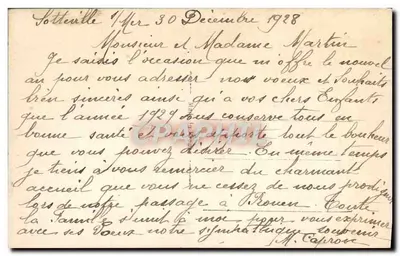 Sotteville s/Mer 30 Décembre 1928
Monsieur et Madame Martin
Je saisis l'occasion que m'offre le nouvel
an pour vous adresser nos voeux et souhaits
bien sincères ainsi qu'à vos chers Enfants
que l'année 1929 vous conserve tous en
bonne santé et vous apporte tout le bonheur
que vous pouvez désirer. En même temps
je tiens à vous remercier du charmant
accueil que vous ne cessez de nous prodiguer
lors de notre passage à Rouen. Toute
la famille s'unit à moi pour vous exprimer
avec ses voeux notre sympathique souvenir
M. Caprove